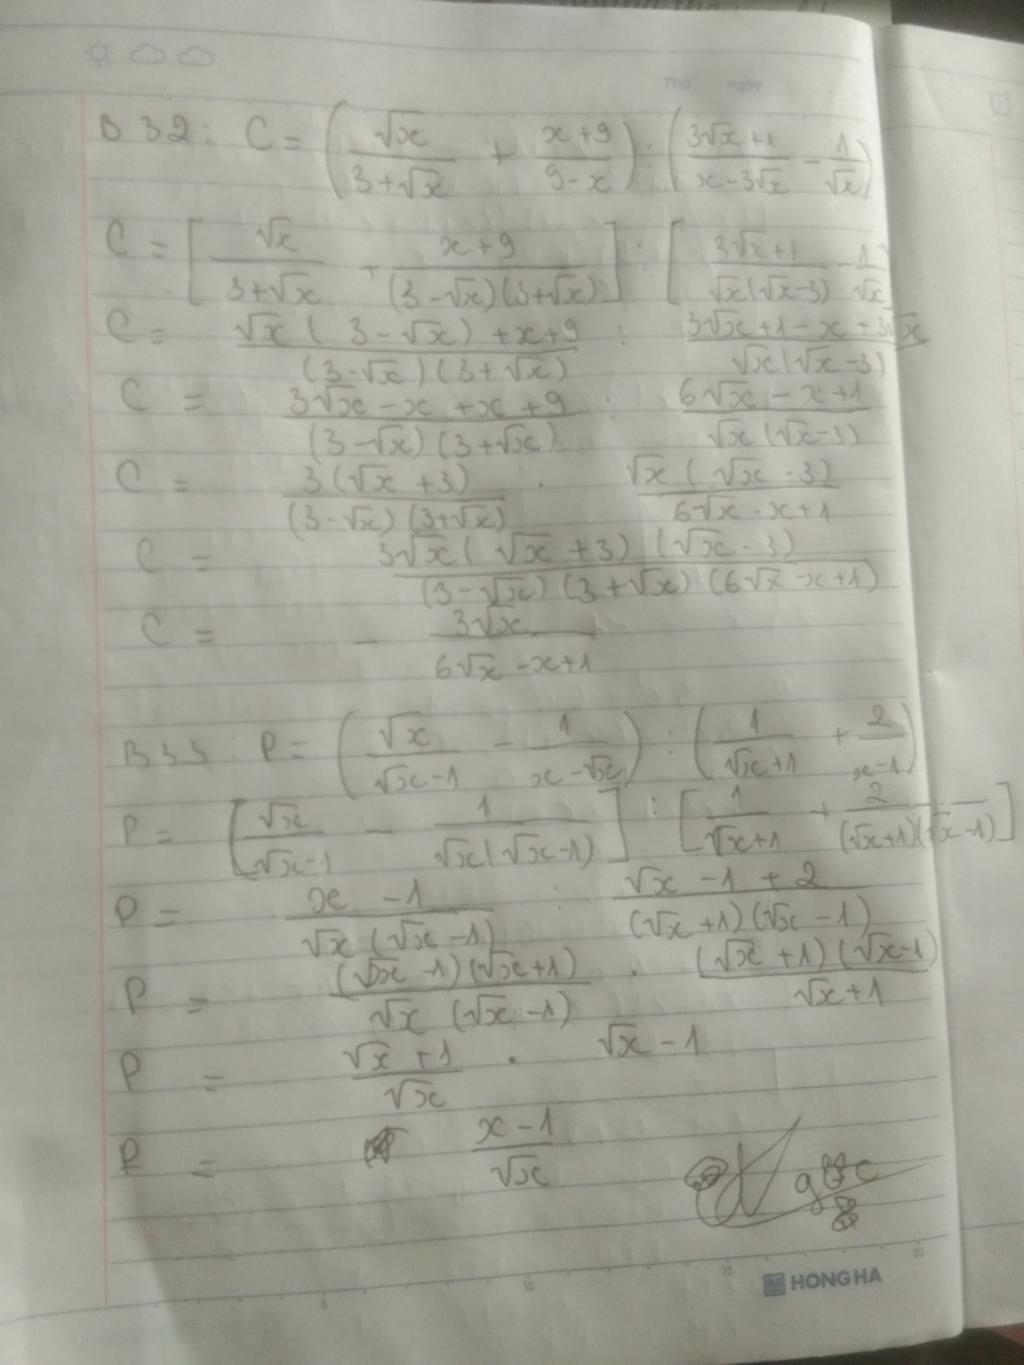 Thứ ngày
B 32: C = (√x / (3+√x) + (x+9) / (9-x)) : ((3√x+1) / (x-3√x) - 1/√x)
C = [√x / (3+√x) + (x+9) / ((3-√x)(3+√x))] : [(3√x+1) / (√x(√x-3)) - 1/√x
C = (√x(3-√x)+x+9) / ((3-√x)(3+√x)) : (3√x+1-x+3√x) / (√x(√x-3))
C = (3√x-x+x+9) / ((3-√x)(3+√x)) : (6√x-x+1) / (√x(√x-3))
C = 3(√x+3) / ((3-√x)(3+√x)) . √x(√x-3) / (6√x-x+1)
C = 3√x(√x+3)(√x-3) / ((3-√x)(3+√x)(6√x-x+1))
C = - 3√x / (6√x-x+1)
B 33: P = (√x / (√x-1) - 1 / (x-√x)) : (1 / (√x+1) + 2 / (x-1))
P = [√x / (√x-1) - 1 / (√x(√x-1))] : [1 / (√x+1) + 2 / ((√x+1)(√x-1))]
P = (x-1) / (√x(√x-1)) : (√x-1+2) / ((√x+1)(√x-1))
P = (√x-1)(√x+1) / (√x(√x-1)) . (√x+1)(√x-1) / (√x+1)
P = (√x+1) / √x . √x-1
P = (x-1) / √x
5 10 15 20
HONG HA